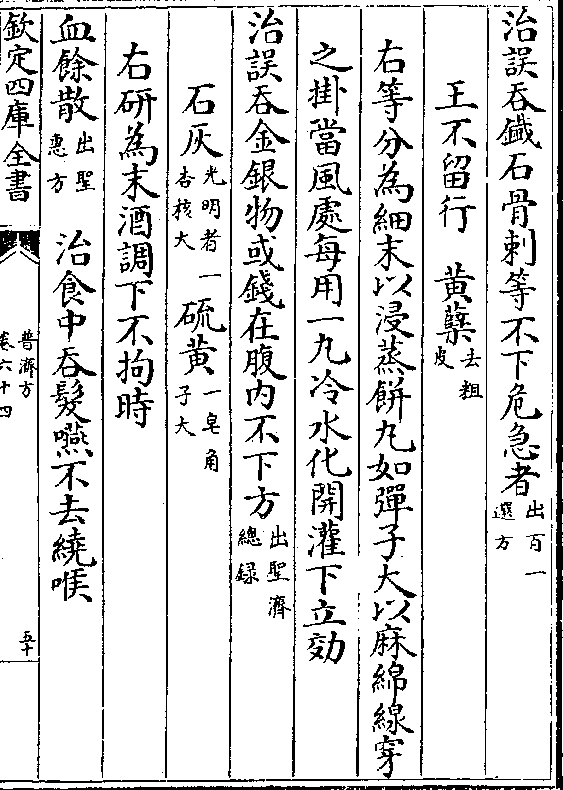 治誤吞鐵石骨刺等不下危急者出百一選方
王不留行　黃蘗去粗皮
右等分為細末以浸蒸餅丸如彈子大以麻綿線穿
之掛當風處每用一丸冷水化開灌下立効
治誤吞金銀物或錢在腹内不下方出聖濟總録
石灰光明者一杏核大　硫黃一皂角子大
右研為末酒調下不拘時
血餘散出聖惠方　治食中吞髮嚥不去繞喉
欽定四庫全書
普濟方
卷六十四
五十